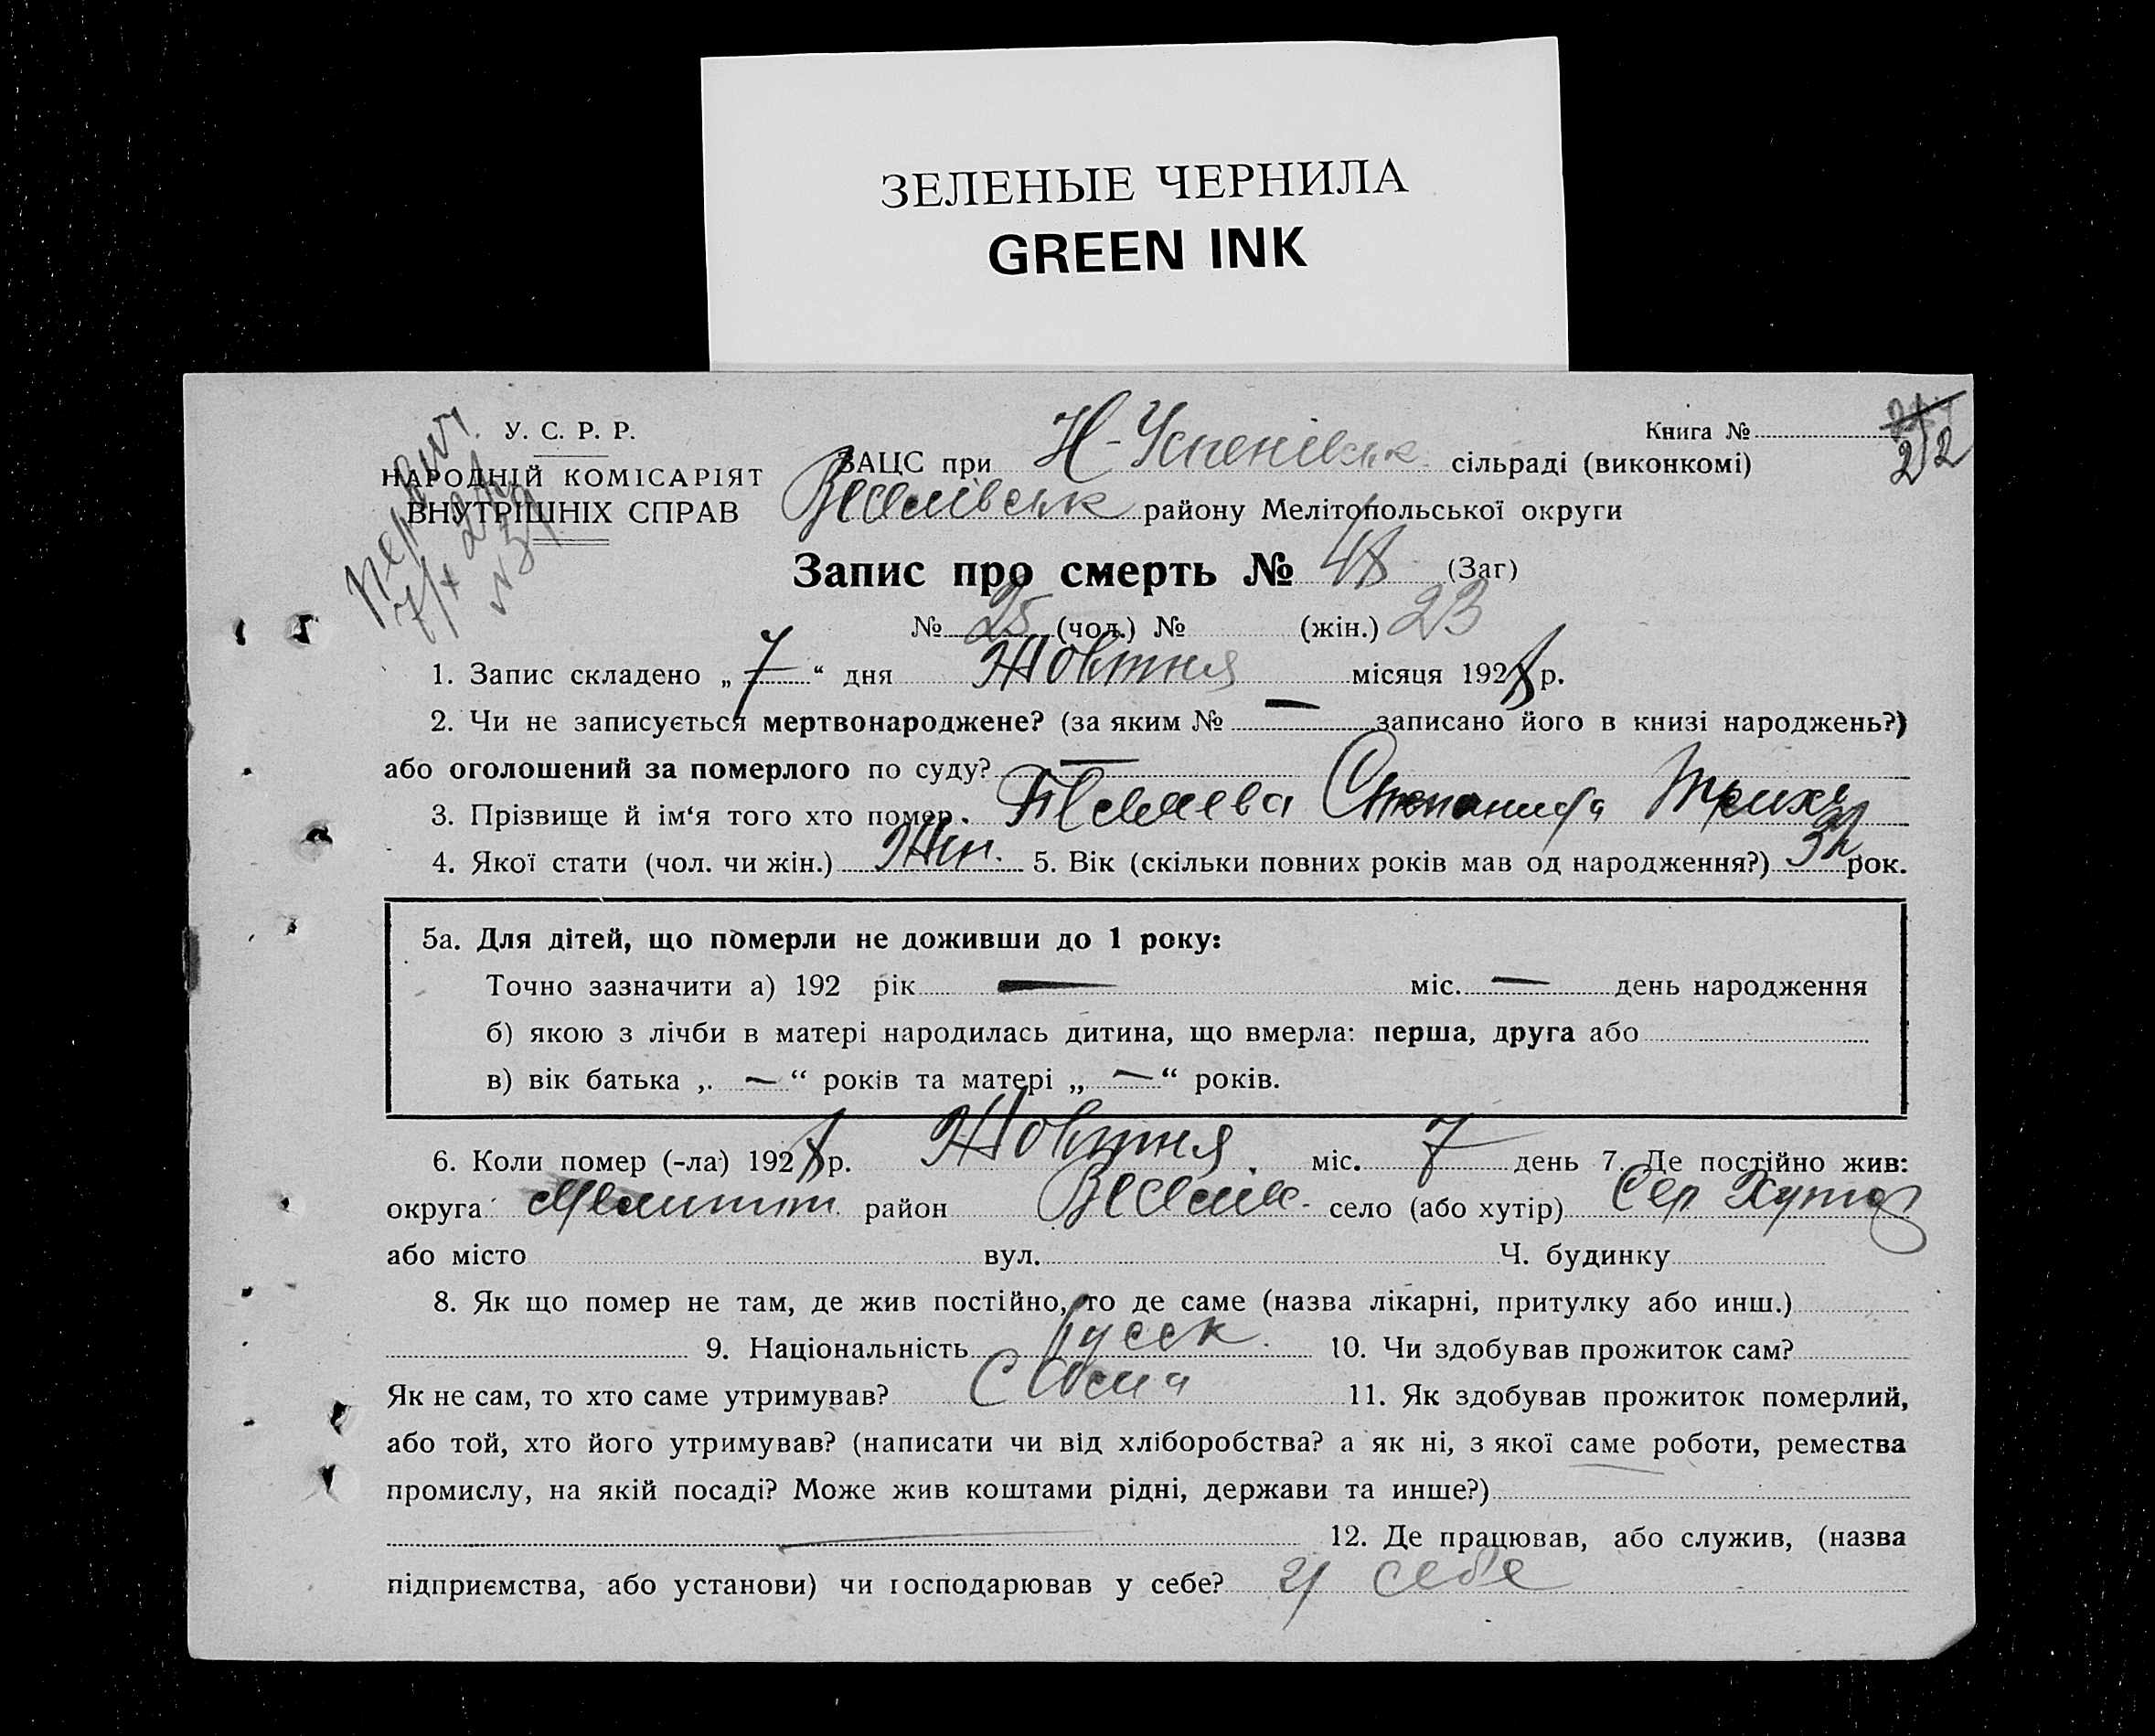 ЗЕЛЕНЫЕ ЧЕРНИЛА
GREEN INK
У. С. Р. Р.
НАРОДНІЙ КОМІСАРІЯТ
ВНУТРІШНІХ СПРАВ
Книга №
212
ЗАЦС при Н-Успенівськ сільраді (виконкомі)
Веселівськ району Мелітопольської округи
Запис про смерть № 48 (Заг)
№ 25 (чол.) № (жін.) 23
1. Запис складено „ 7 “ дня Жовтня місяця 1928 р.
2. Чи не записується мертвонароджене? (за яким № — записано його в книзі народжень?)
або оголошений за померлого по суду? —
3. Прізвище й ім‘я того хто помер. Степанида
4. Якої стати (чол. чи жін.) Жін. 5. Вік (скільки повних років мав од народження?) 32 рок.
5а. Для дітей, що померли не доживши до 1 року:
Точно зазначити а) 192 рік — міс. — день народження
б) якою з лічби в матері народилась дитина, що вмерла: перша, друга або
в) вік батька „ — “ років та матері „ — “ років.
6. Коли помер (-ла) 1928 р. Жовтня міс. 7 день 7. Де постійно жив:
округа Мелитоп. район Веселів- село (або хутір) Сер Хутор
або місто вул. Ч. будинку
8. Як що помер не там, де жив постійно, то де саме (назва лікарні, притулку або инш.)
9. Національність русск. 10. Чи здобував прожиток сам?
Як не сам, то хто саме утримував? 11. Як здобував прожиток померлий,
або той, хто його утримував? (написати чи від хліборобства? а як ні, з якої саме роботи, ремества
промислу, на якій посаді? Може жив коштами рідні, держави та инше?)
— 12. Де працював, або служив, (назва
підприємства, або установи) чи господарював у себе? у себе